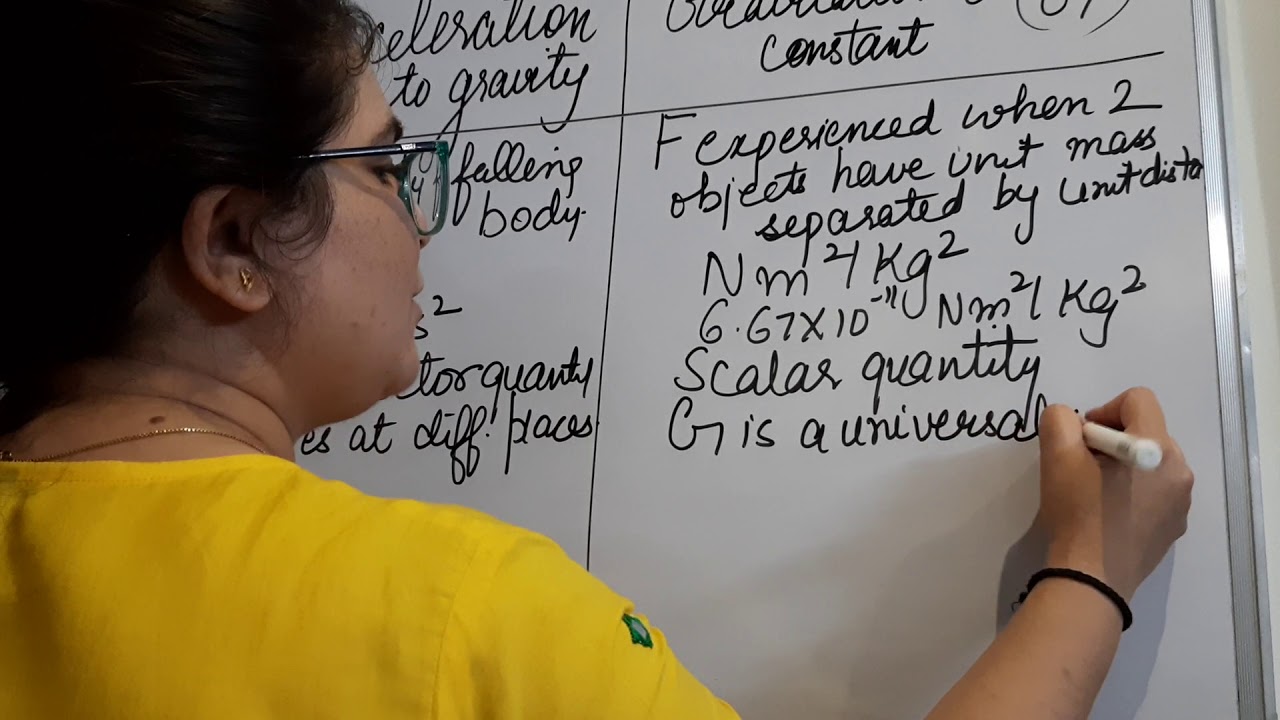 celeration
to gravity
falling
body.
s²
tor quantity
es at diff. places
constant
F experienced when 2
objects have unit mass
separated by unit dista
Nm²/Kg²
6.67X10⁻¹¹ Nm²/Kg²
Scalar quantity
G is a universal